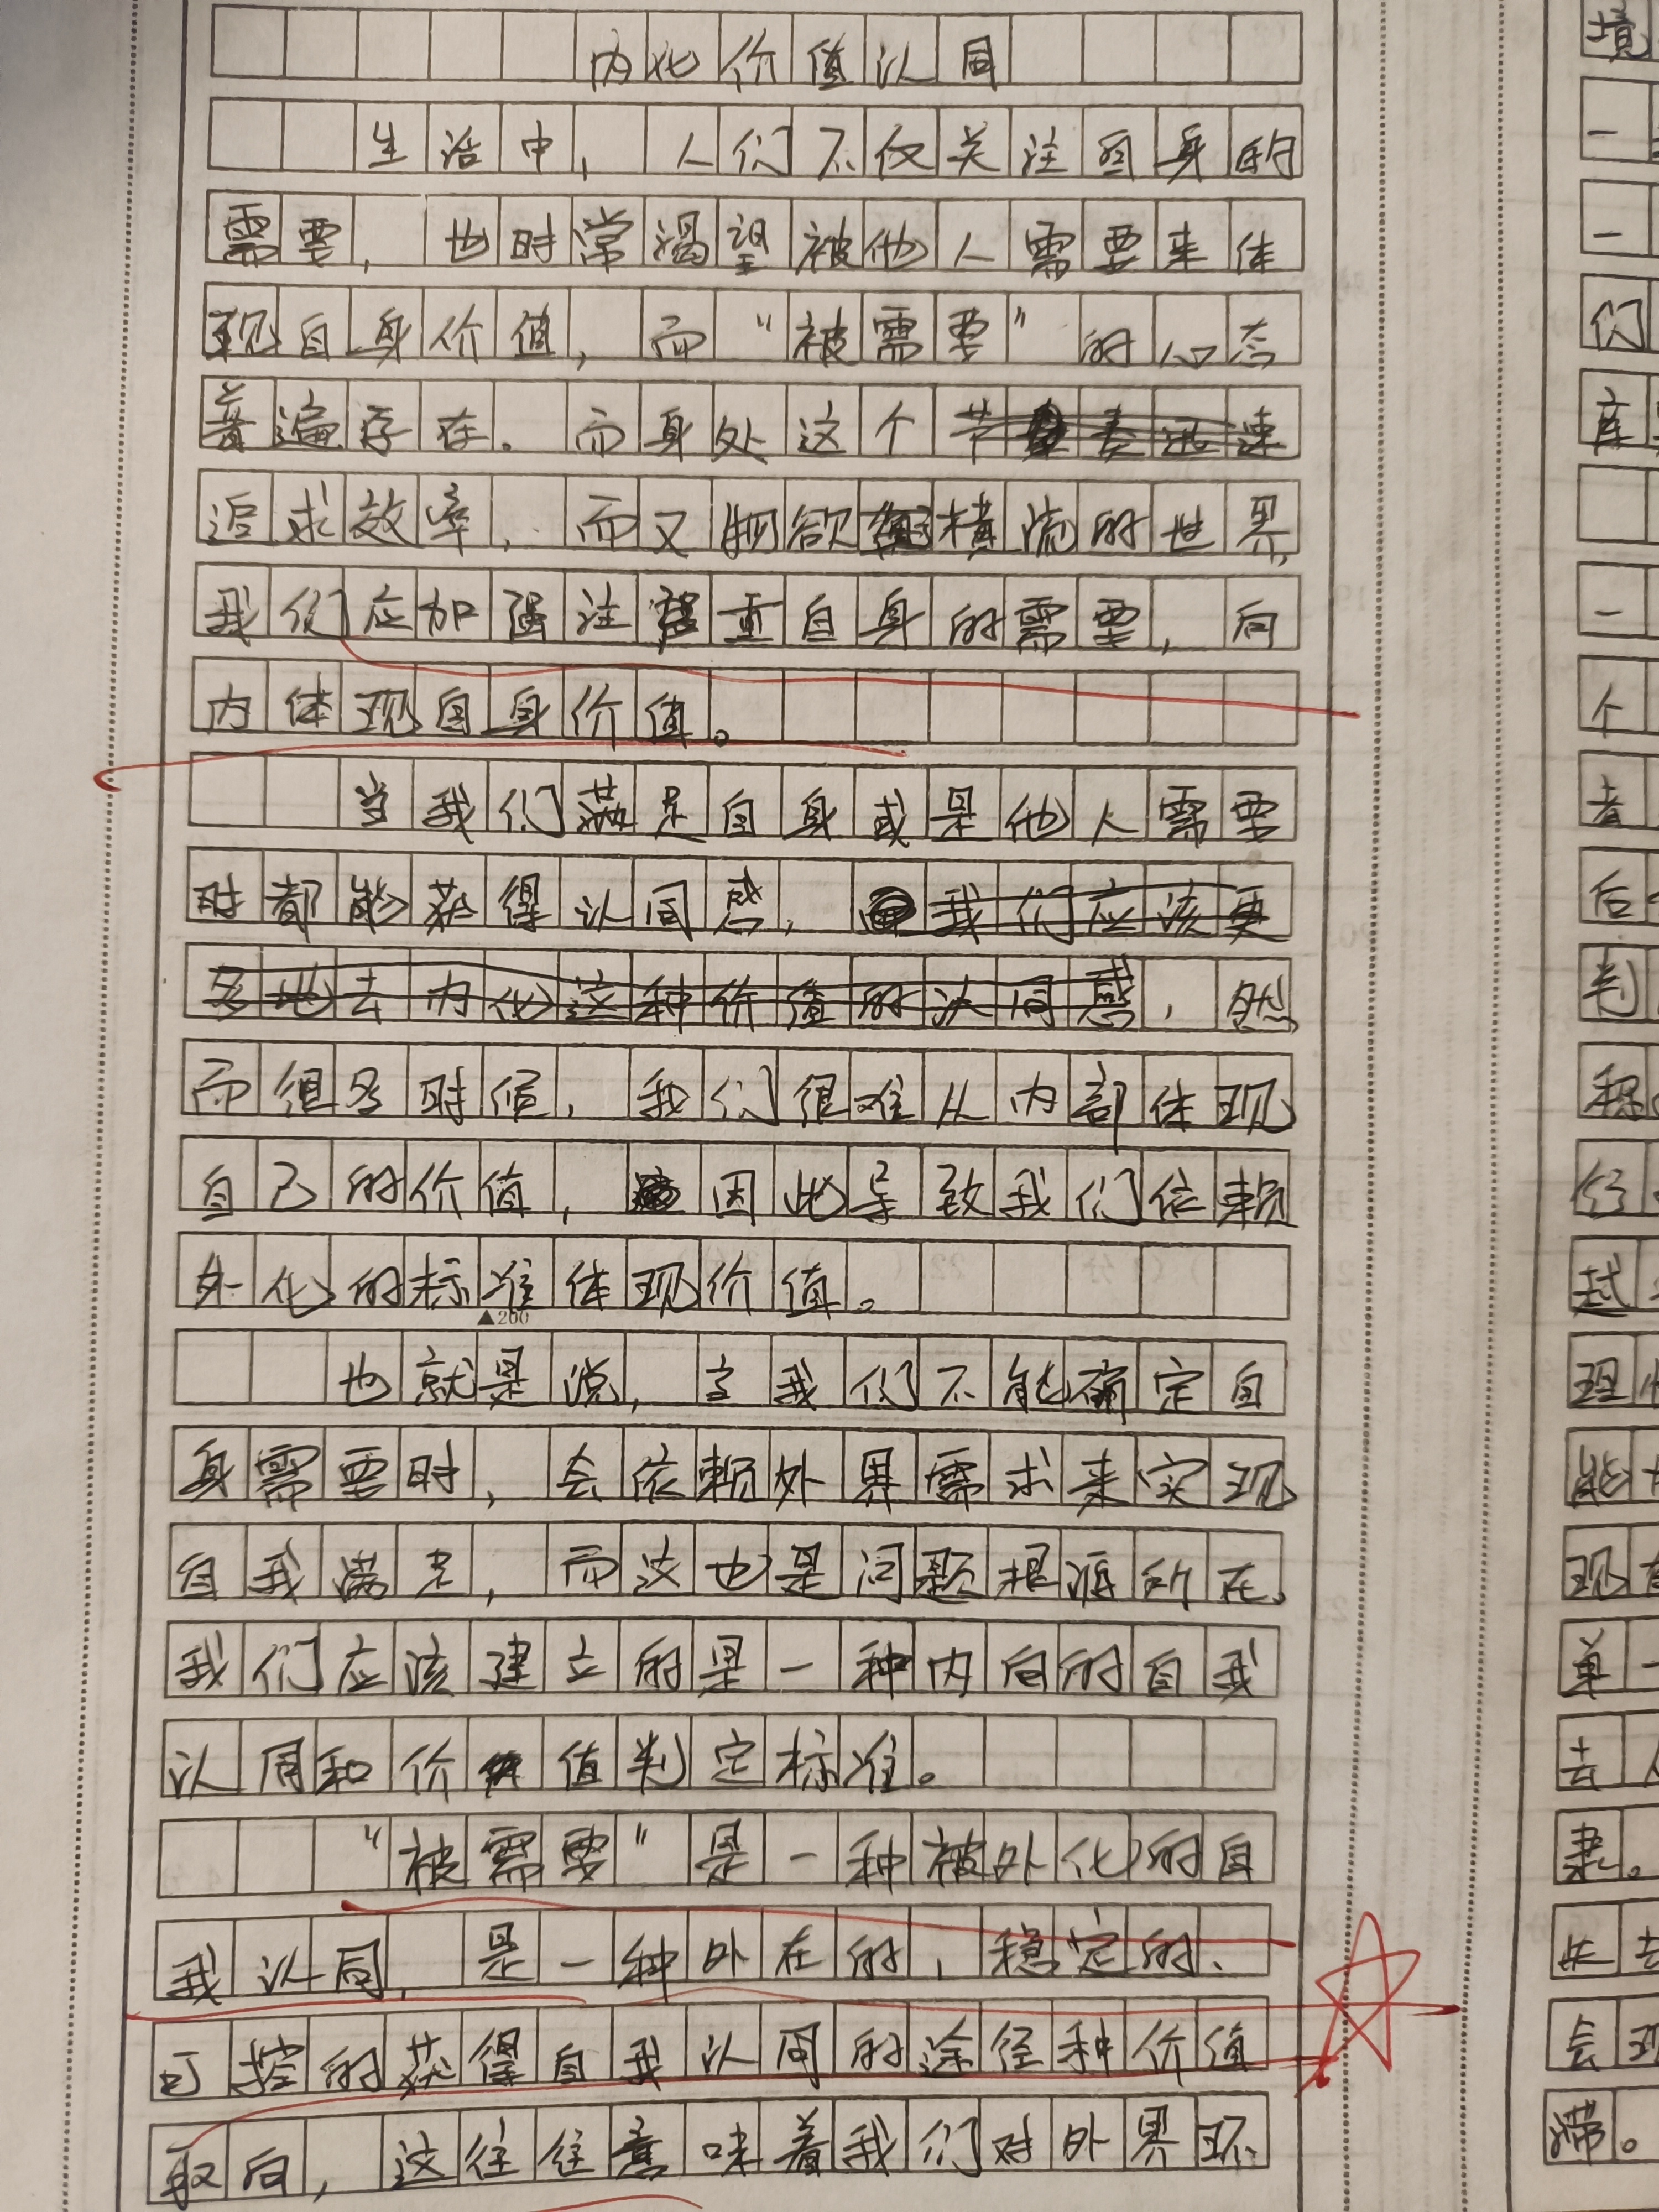 内化价值认同
生活中，人们不仅关注自身的
需要，也时常渴望被他人需要来体
现自身价值，而“被需要”的心态
普遍存在。而身处这个节奏迅速
追求效率，而又物欲横流的世界，
我们应加强注重自身的需要，向
内体现自身价值。
当我们满足自身或是他人需要
时都能获得认同感，我们应该更
多地去内化这种价值的认同感，然
而很多时候，我们很难从内部体现
自己的价值，因此导致我们依赖
外化的标准体现价值。
▲200
也就是说，当我们不能确定自
身需要时，会依赖外界需求来实现
自我满足，而这也是问题根源所在。
我们应该建立的是一种内向的自我
认同和价值判定标准。
“被需要”是一种被外化的自
我认同，是一种外在的，稳定的、
可控的获得自我认同的途径种价值
取向，这往往意味着我们对外界环
境
一
一
们
个
者
后
判
称
经
封
理
能
现
单一
去人
隶。
失去
会现
滞。